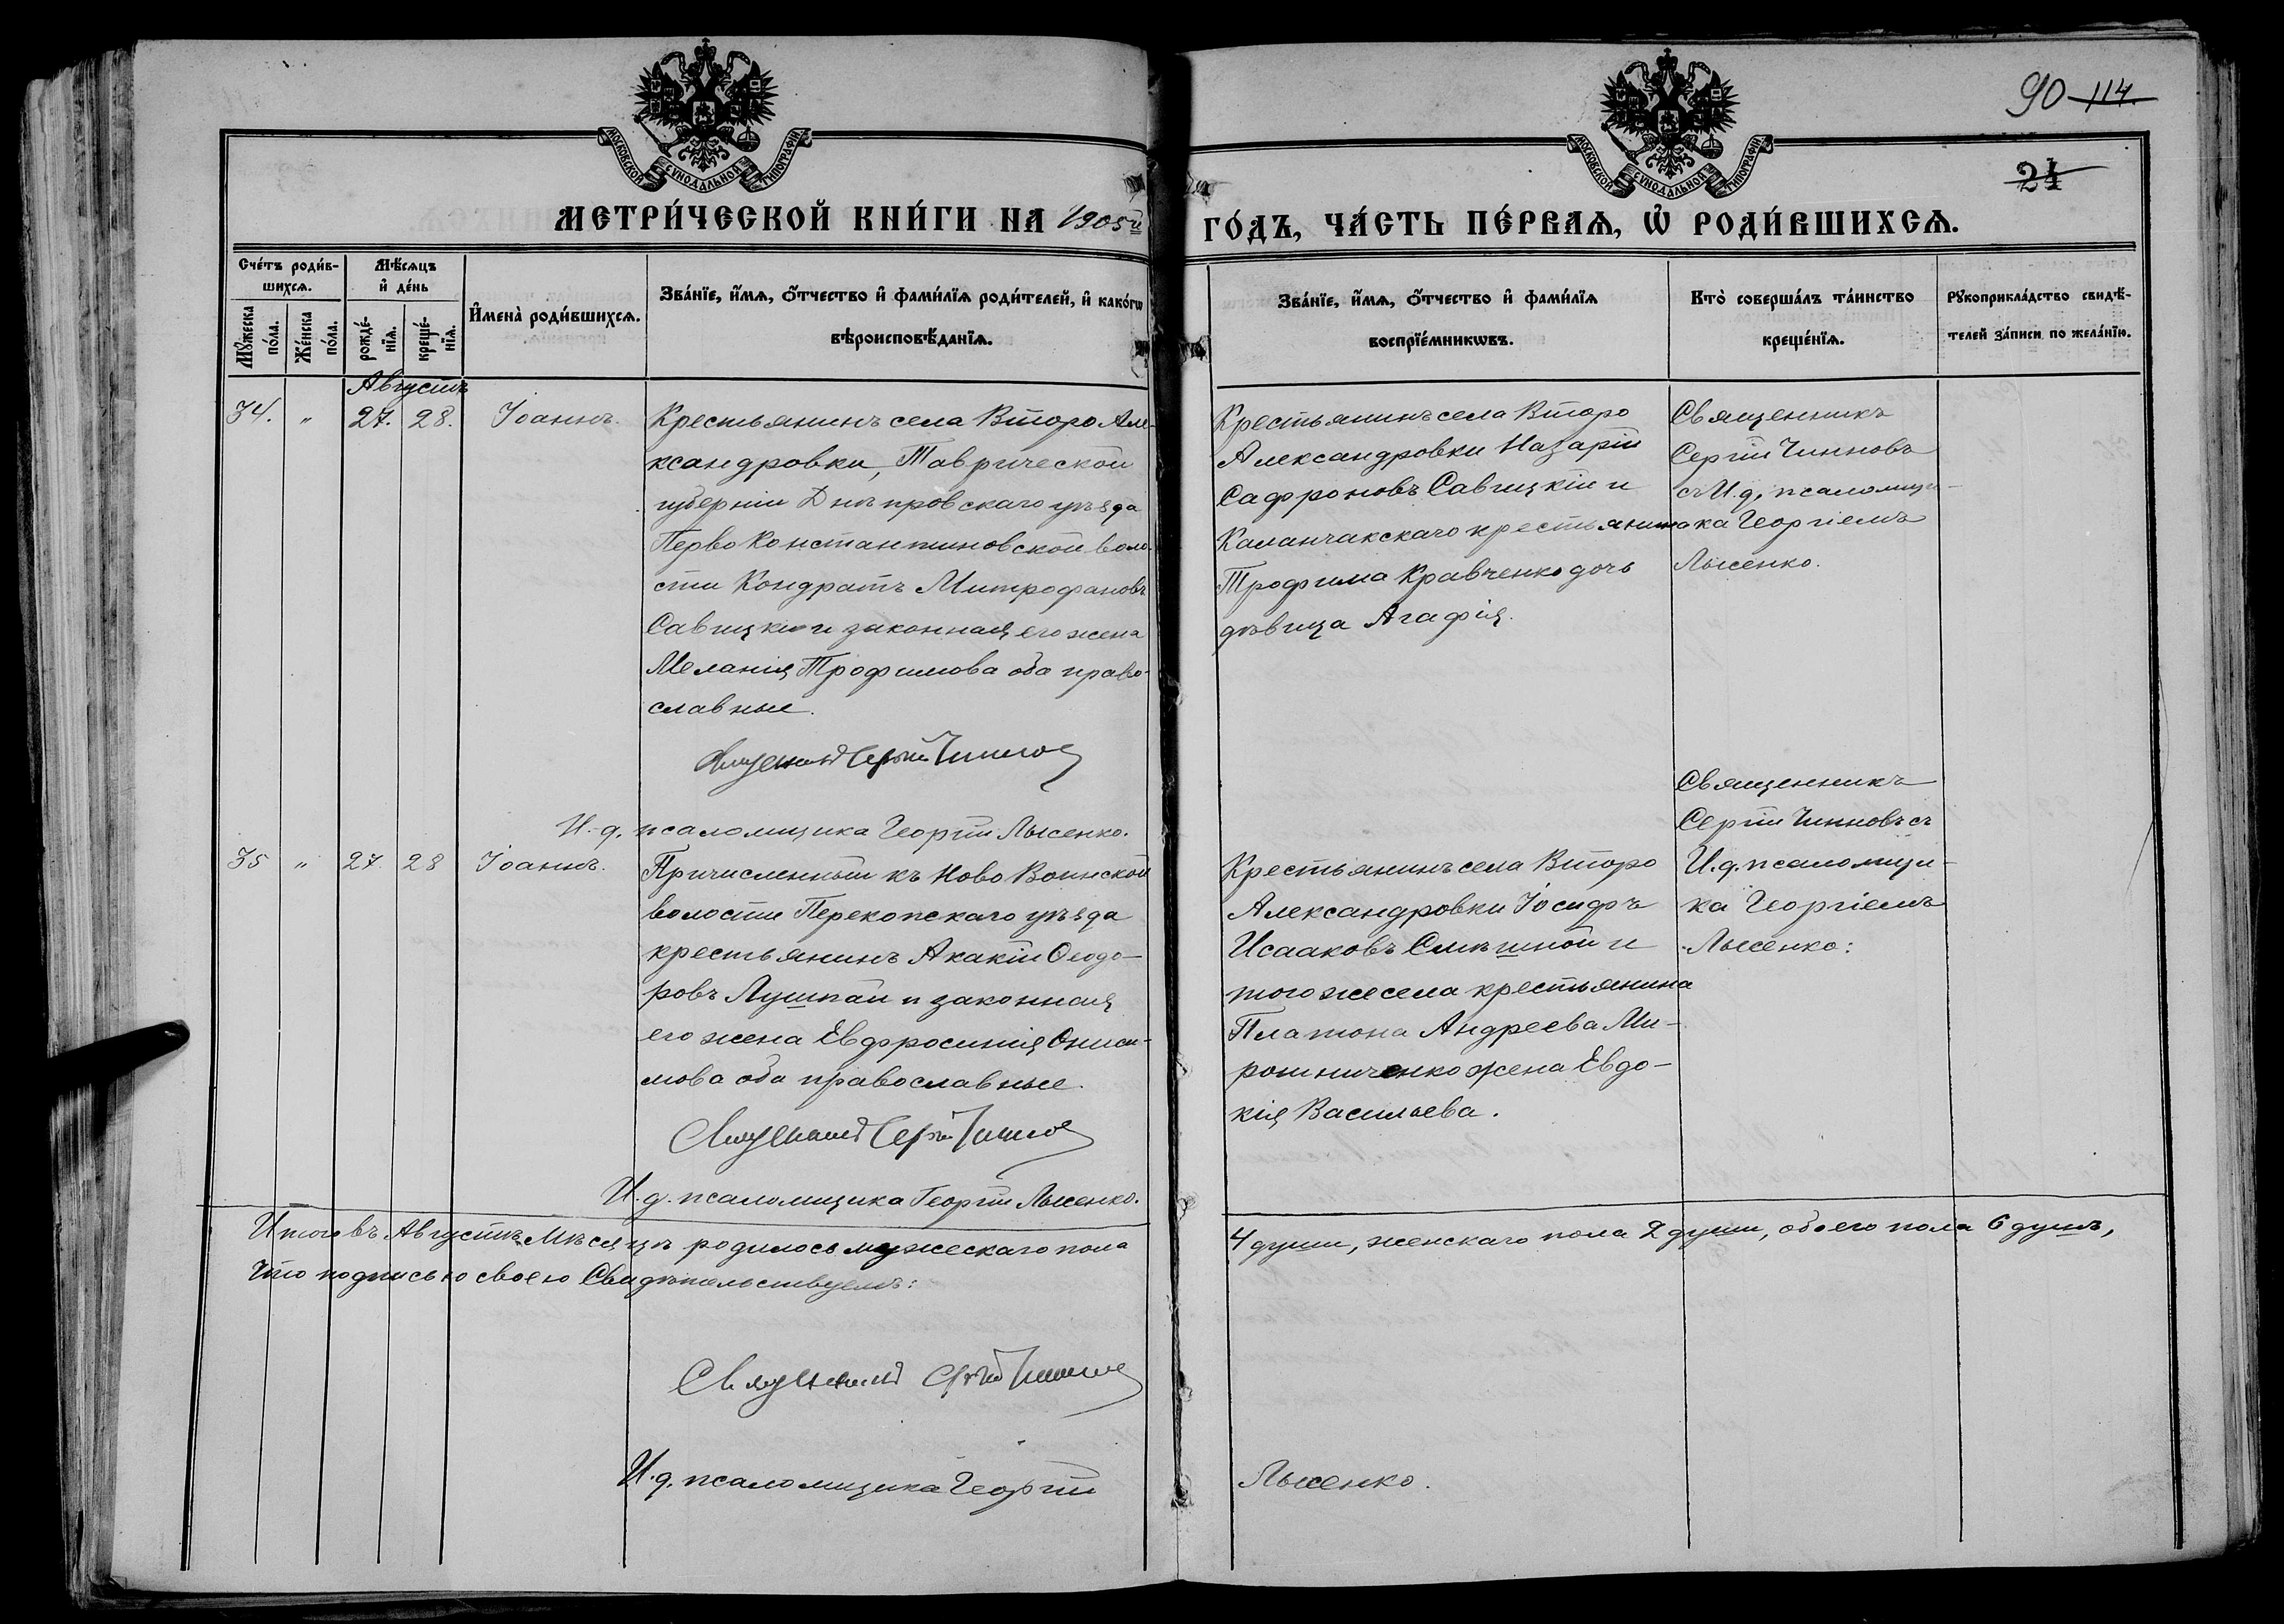 90 114.
24
МОСКОВСКОЙ СѴНОДАЛЬНОЙ ТИПОГРАФІИ
МОСКОВСКОЙ СѴНОДАЛЬНОЙ ТИПОГРАФІИ
МЕТРИ́ЧЕСКОЙ КНИ́ГИ НА 1905й
ГО́ДЪ, ЧА́СТЬ ПЕ́РВАѦ, Ѡ҆ РОДИ́ВШИХСѦ.
Сче́тъ роди́в-
шихсѧ.
Мꙋ́жеска по́ла.
Же́нска по́ла.
Мѣ́сѧцъ
и҆ де́нь
рожде́-
нїѧ.
креще́-
нїѧ.
И҆мена̀ роди́вшихсѧ.
Зва́нїе, и҆́мѧ, ѻ҆́тчество и҆ фами́лїѧ роди́телей, и҆ како́гѡ
вѣроисповѣ́данїѧ.
Зва́нїе, и҆́мѧ, ѻ҆́тчество и҆ фами́лїѧ
воспрїе́мникѡвъ.
Кто̀ соверша́лъ та́инство
креще́нїѧ.
Рꙋкоприкла́дство свидѣ́-
телей за́писи по жела́нїю.
Августъ
34. " 27. 28. Іоаннъ.
Крестьянинъ села Второ Але-
ксандровки, Таврической
губерніи Днѣпровскаго уѣзда
Перво Константиновской воло-
сти Кондратъ Митрофановъ
Савицкій и законная его жена
Меланія Трофимова оба право-
славные.
Священникъ Сергій Чинновъ
И. д. псаломщика Георгій Лысенко.
Крестьянинъ села Второ
Александровки Назарій
Сафроновъ Савицкій и
Каланчакскаго крестьянина
Трофима Кравченко дочь
дѣвица Агафія.
Священникъ
Сергій Чинновъ
съ И. д. псаломщи-
ка Георгіемъ
Лысенко.
35 " 27 28 Іоаннъ.
Причисленный къ Ново Воинской
волости Перекопскаго уѣзда
крестьянинъ Акакій Ѳеодо-
ровъ Лушпай и законная
его жена Евфросинія Ониси-
мова оба православные.
Священникъ Сергій Чинновъ
И. д. псаломщика Георгій Лысенко.
Крестьянинъ села Второ
Александровки Іосифъ
Исааковъ Смѣшной и
того же села крестьянина
Платона Андреева Ми-
рошниченко жена Евдо-
кія Васильева.
Священникъ
Сергій Чинновъ съ
И. д. псаломщи-
ка Георгіемъ
Лысенко:
Итого въ Августѣ Мѣсяцѣ родилось мужескаго пола 4 души, женскаго пола 2 души, обоего пола 6 душъ,
Что подписью своею Свидѣтельствуемъ:
Священникъ Сергій Чинновъ
И. д. псаломщика Георгій Лысенко.